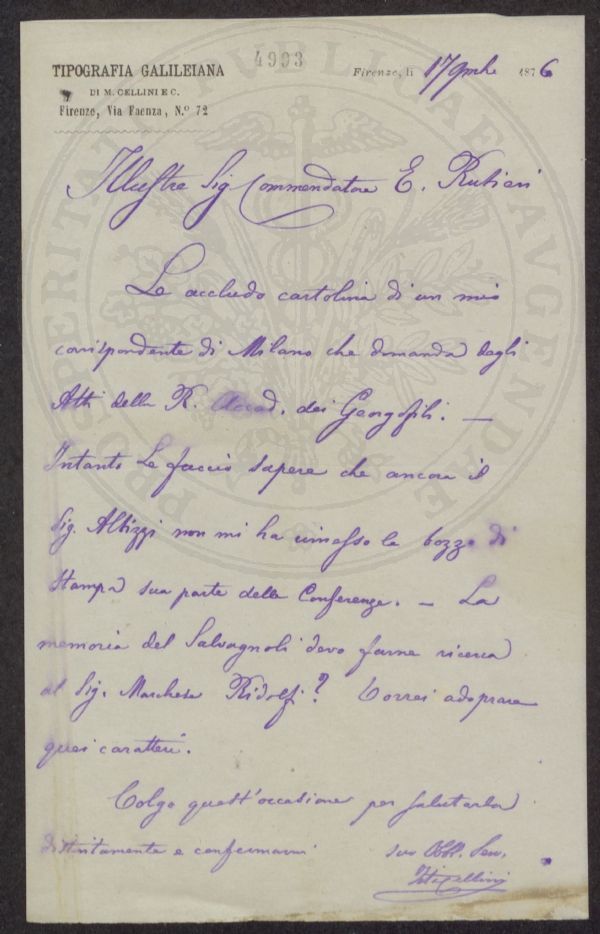 4993
TIPOGRAFIA GALILEIANA
DI M. CELLINI E C.
Firenze, Via Faenza, N.º 72
Firenze, li 17 9mbre 1876
Illustre Sig Commendatore E. Rubieri
Le accludo cartolina di un mio
corrispondente di Milano che domanda degli
Atti della R. Accad. dei Georgofili. —
Intanto Le faccio sapere che ancora il
Sig. Albizzi non mi ha rimesso le bozze di
stampa sua parte delle Conferenze. — La
memoria del Salvagnoli devo farne ricerca
al Sig. Marchese Ridolfi? Vorrei adoprare
quei caratteri.
Colgo quest'occasione per salutarla
distintamente e confermarmi
suo Obb. Serv.
Cellini
PRO PROSPERITATE PVBLICA AVGENDAE